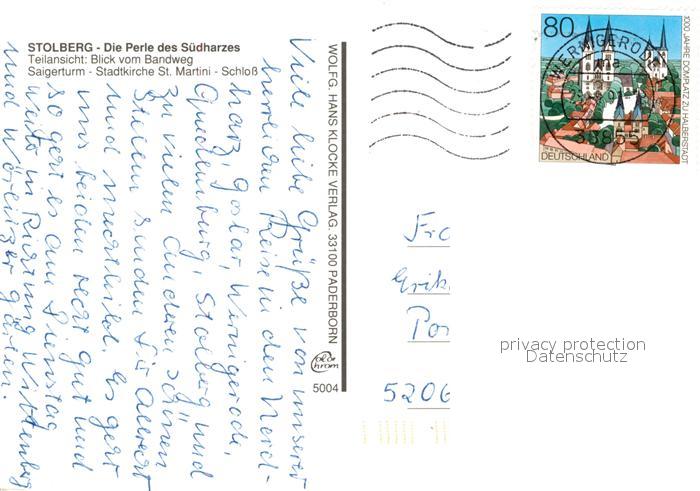 STOLBERG - Die Perle des Südharzes
Teilansicht: Blick vom Bandweg
Saigerturm - Stadtkirche St. Martini - Schloß
Viele liebe Grüße von unserer
Reise in den Nord-
harz, Goslar, Wernigerode,
Quedlinburg, Stolberg und
zu vielen anderen schönen
Stellen senden Dir Albrecht
und Mechthild. Es geht
uns beiden recht gut und
so geht es am Dienstag
weiter in Richtung Wittenberg
und Wörlitzer Gärten.
WOLFG. HANS KLOCKE VERLAG. 33100 PADERBORN
color chrom
5004
80
DEUTSCHLAND
1000 JAHRE DOMPLATZ ZU HALBERSTADT
WERNIGERODE
38855
Fra
Erik
Por
5206
privacy protection
Datenschutz